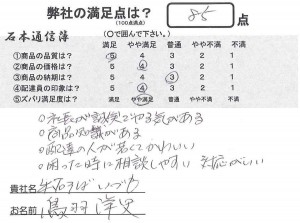 弊社の満足点は？ 85 点
(100点満点)
石本通信簿 (○で囲んで下さい。)
満足 やや満足 普通 やや不満 不満
①商品の品質は？ 5 4 3 2 1
②商品の価格は？ 5 4 3 2 1
③商品の納期は？ 5 4 3 2 1
④配達員の印象は？ 5 4 3 2 1
⑤ズバリ満足度は？ 満足 やや満足 普通 やや不満 不満
○社長が誠実でやる気がある
○商品知識がある
○配達の人が若くてかわいい
○困った時に相談しやすい 対応がいい
貴社名
お名前 鳥羽